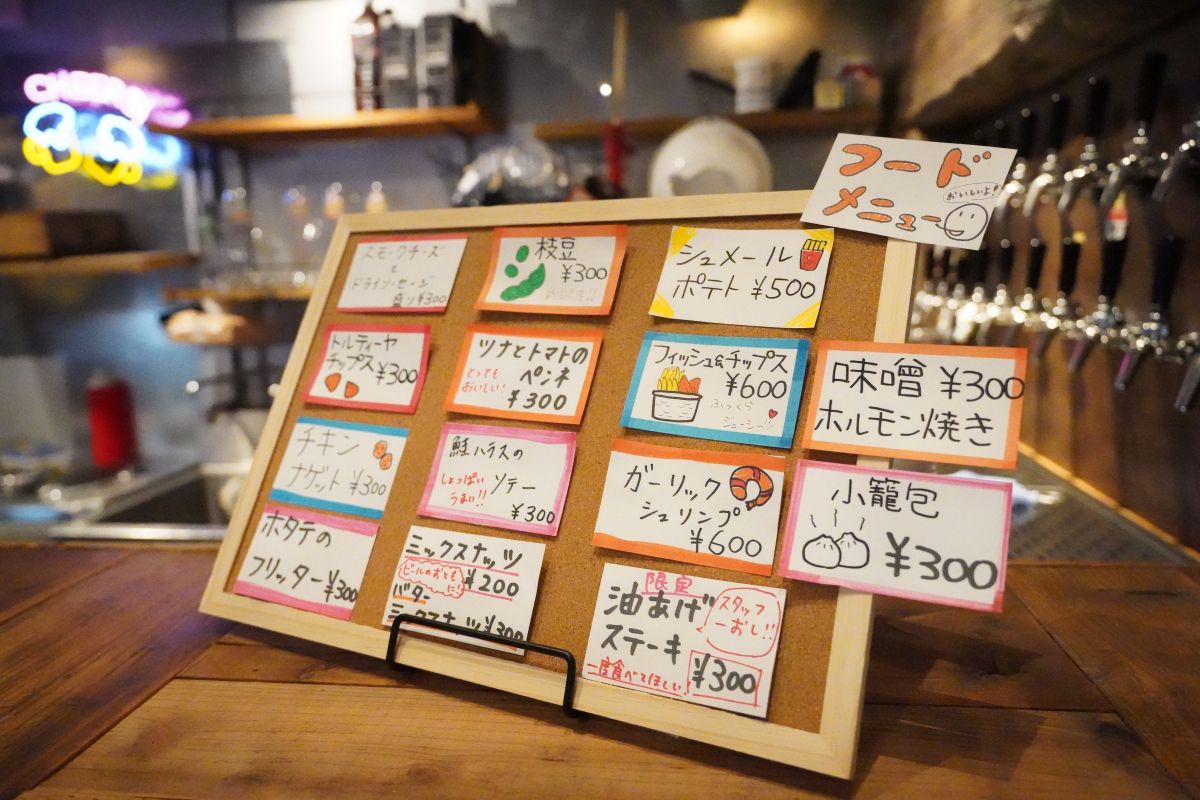 CHEERS
フード
メニュー
おいしいよ!
スモークチーズ
と
ドライソーセージ
盛り ¥300
枝豆
¥300
シュメール
ポテト ¥500
トルティーヤ
チップス ¥300
ツナとトマトの
ペンネ
とっても
おいしい!
¥300
フィッシュ&チップス
¥600
ふっくら
ジューシー!!
味噌 ¥300
ホルモン焼き
チキン
ナゲット ¥300
鮭ハラスの
ソテー
しょっぱい
うまい!!
¥300
ガーリック
シュリンプ
¥600
小籠包
¥300
ホタテの
フリッター ¥300
ミックスナッツ
¥200
ビールのおとも
に!
バター
ミックスナッツ ¥300
限定
油あげ
ステーキ
スタッフ
一おし!!
一度食べてほしい!
¥300